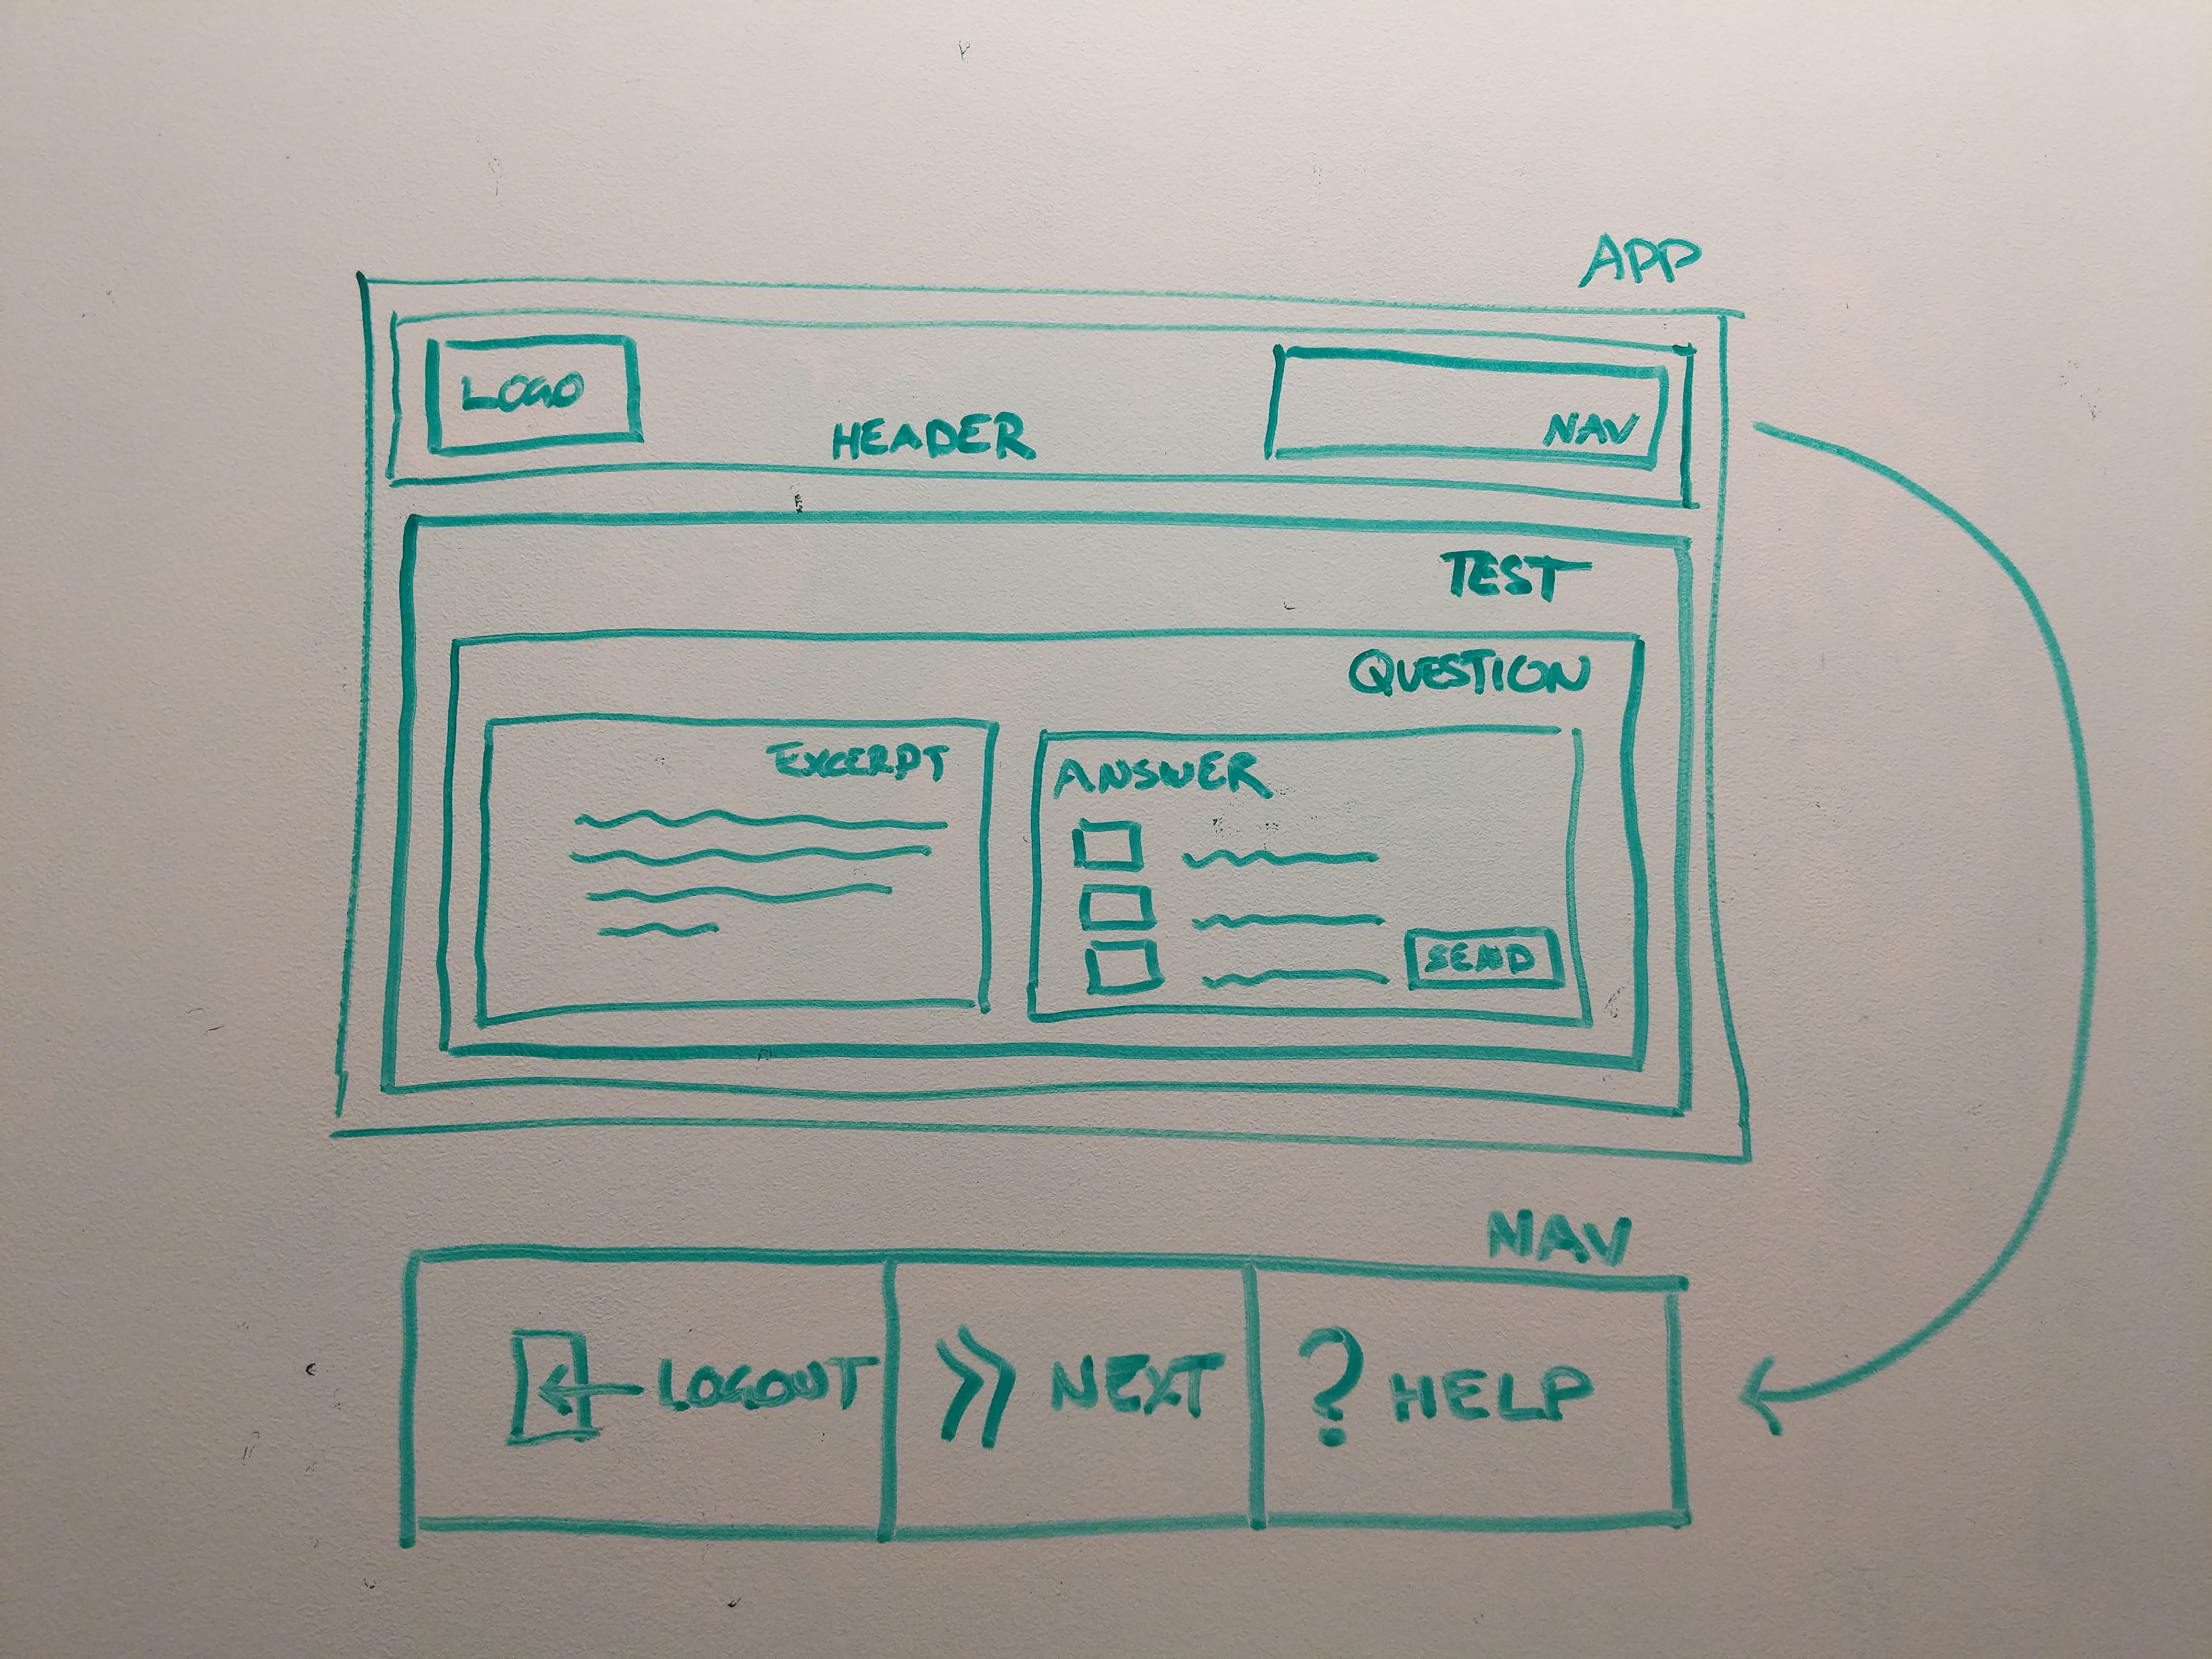 APP
LOGO
HEADER
NAV
TEST
QUESTION
EXCERPT
ANSWER
SEND
NAV
LOGOUT
» NEXT
? HELP